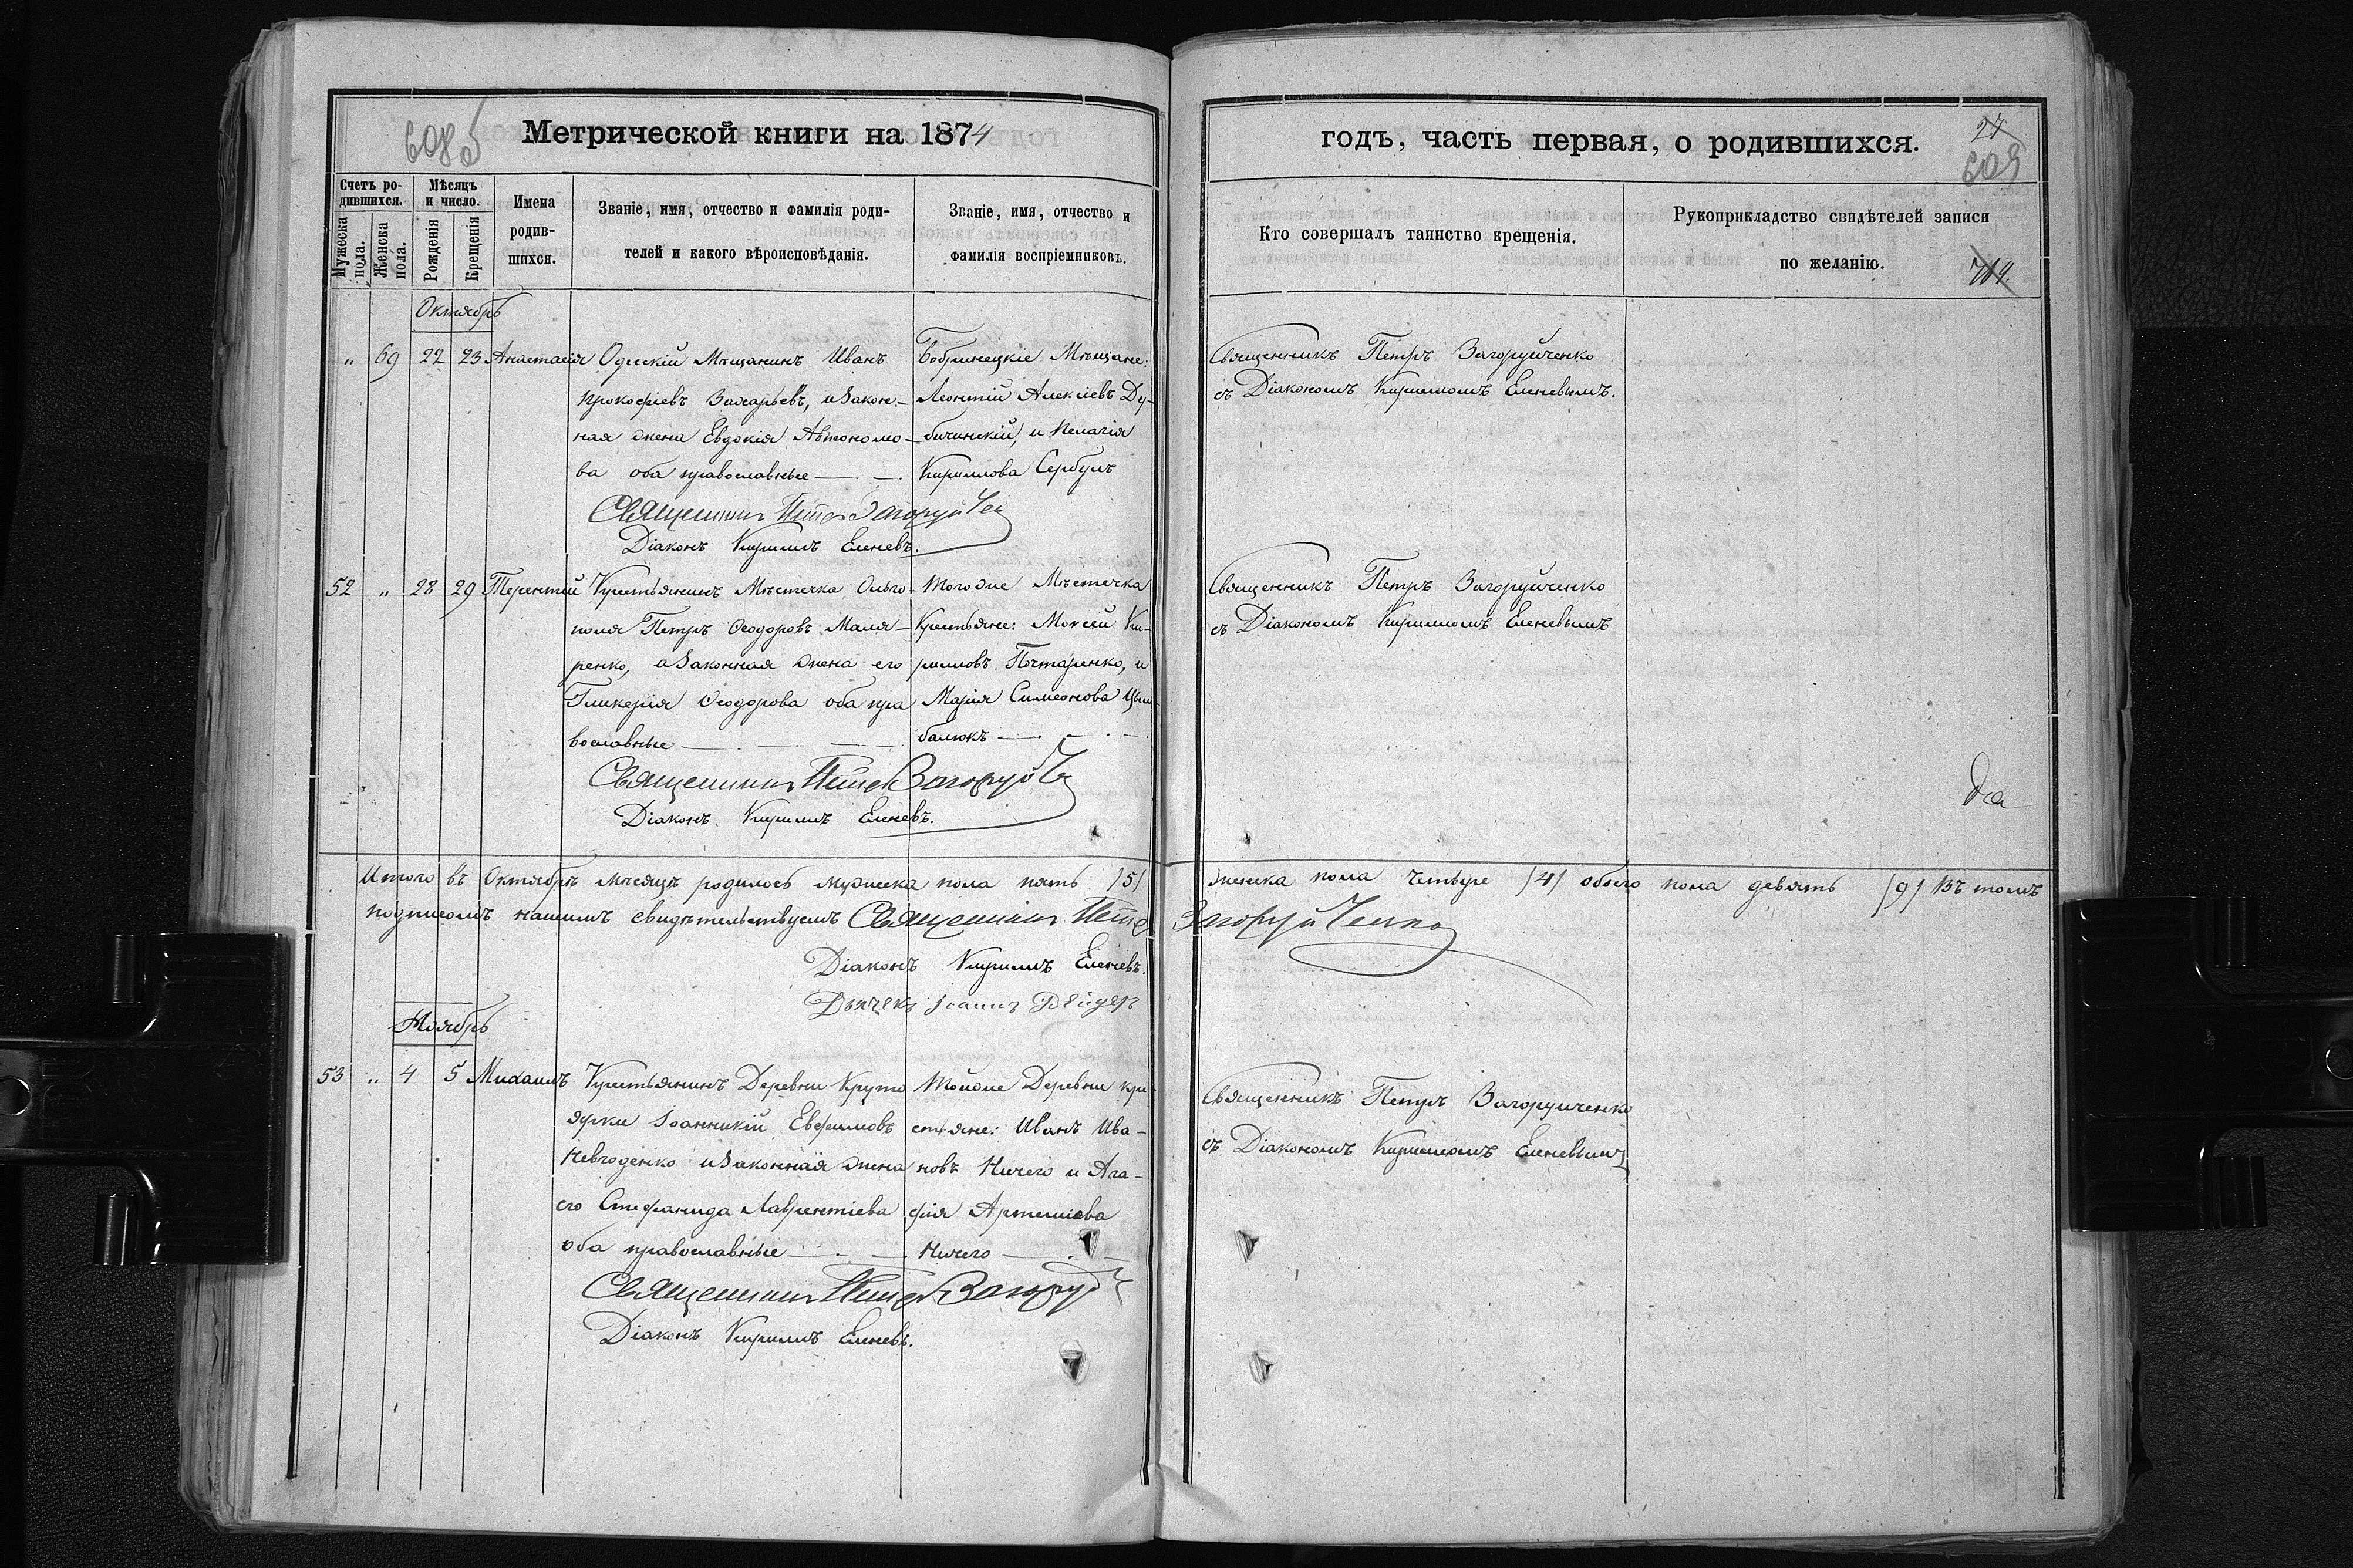 608 б
Метрической книги на 1874
годъ, часть первая, о родившихся.
27
609
719.
Счетъ ро-
дившихся.
Мужеска пола.
Женска пола.
Мѣсяцъ
и число.
Рожденія
Крещенія
Имена
родив-
шихся.
Званіе, имя, отчество и фамилія роди-
телей и какого вѣроисповѣданія.
Званіе, имя, отчество и
фамилія воспріемниковъ.
Кто совершалъ таинство крещенія.
Рукоприкладство свидѣтелей записи
по желанію.
Октябрь
„ 69 22 23 Анастасія
Одесскій Мѣщанинъ Иванъ
Прокофіевъ Захарьевъ, и Закон-
ная жена Евдокія Автономо-
ва оба православные
Бобринецкіе Мѣщане:
Леонтій Алексіевъ Ду-
бичинскій, и Пелагія
Кириллова Сербулъ
Священникъ Петръ Загоруйченко
съ Діакономъ Кирилломъ Еленевымъ.
Священникъ Петръ Загоруйчен
Діаконъ Кириллъ Еленевъ.
52 „ 28 29 Терентій
Крестьянинъ Мѣстечка Ольго-
поля Петръ Ѳеодоровъ Маля-
ренко, и Законная жена его
Гликерія Ѳеодорова оба пра
вославные
Тогоже Мѣстечка
Крестьяне: Моисей Ки-
рилловъ Почтаренко, и
Марія Симеонова Цым-
балюкъ
Священникъ Петръ Загоруйченко
съ Діакономъ Кирилломъ Еленевымъ
Священникъ Петръ Загоруйч
Діаконъ Кириллъ Еленевъ.
Итого въ Октябрѣ мѣсяцѣ родилось мужеска пола пять /5/ женска пола четыре /4/ обоего пола девять /9/ Въ томъ
подписомъ нашимъ свидѣтельствуемъ Священникъ Петръ Загоруйченко
Діаконъ Кириллъ Еленевъ.
Дьячекъ Іоаннъ
Ноябрь
53 „ 4 5 Михаилъ
Крестьянинъ Деревни Круто
ярки Іоанникій Евфимовъ
Невгоденко и Законная жена
его Стефанида Лаврентіева
оба православные
Тойже Деревни кре-
стьяне: Иванъ Ива-
новъ Ничего и Ага-
фія Артеміева
Ничего
Священникъ Петръ Загоруйченко
съ Діакономъ Кирилломъ Еленевымъ
Священникъ Петръ Загоруйч
Діаконъ Кириллъ Еленевъ.